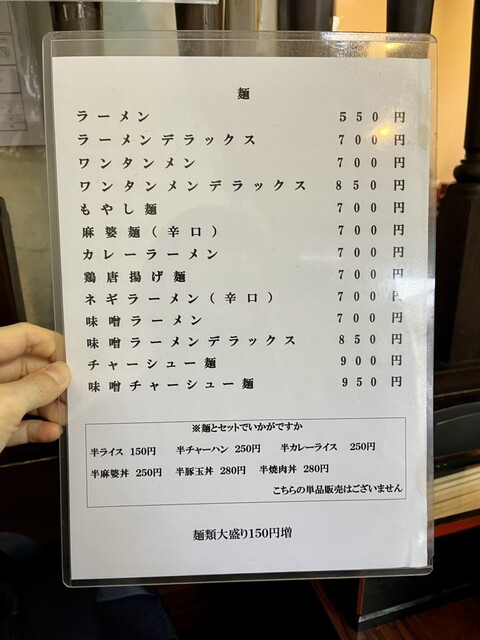 麺
ラーメン 550円
ラーメンデラックス 700円
ワンタンメン 700円
ワンタンメンデラックス 850円
もやし麺 700円
麻婆麺(辛口) 700円
カレーラーメン 700円
鶏唐揚げ麺 700円
ネギラーメン(辛口) 700円
味噌ラーメン 700円
味噌ラーメンデラックス 850円
チャーシュー麺 900円
味噌チャーシュー麺 950円
※麺とセットでいかがですか
半ライス 150円 半チャーハン 250円 半カレーライス 250円
半麻婆丼 250円 半豚玉丼 280円 半焼肉丼 280円
こちらの単品販売はございません
麺類大盛り150円増